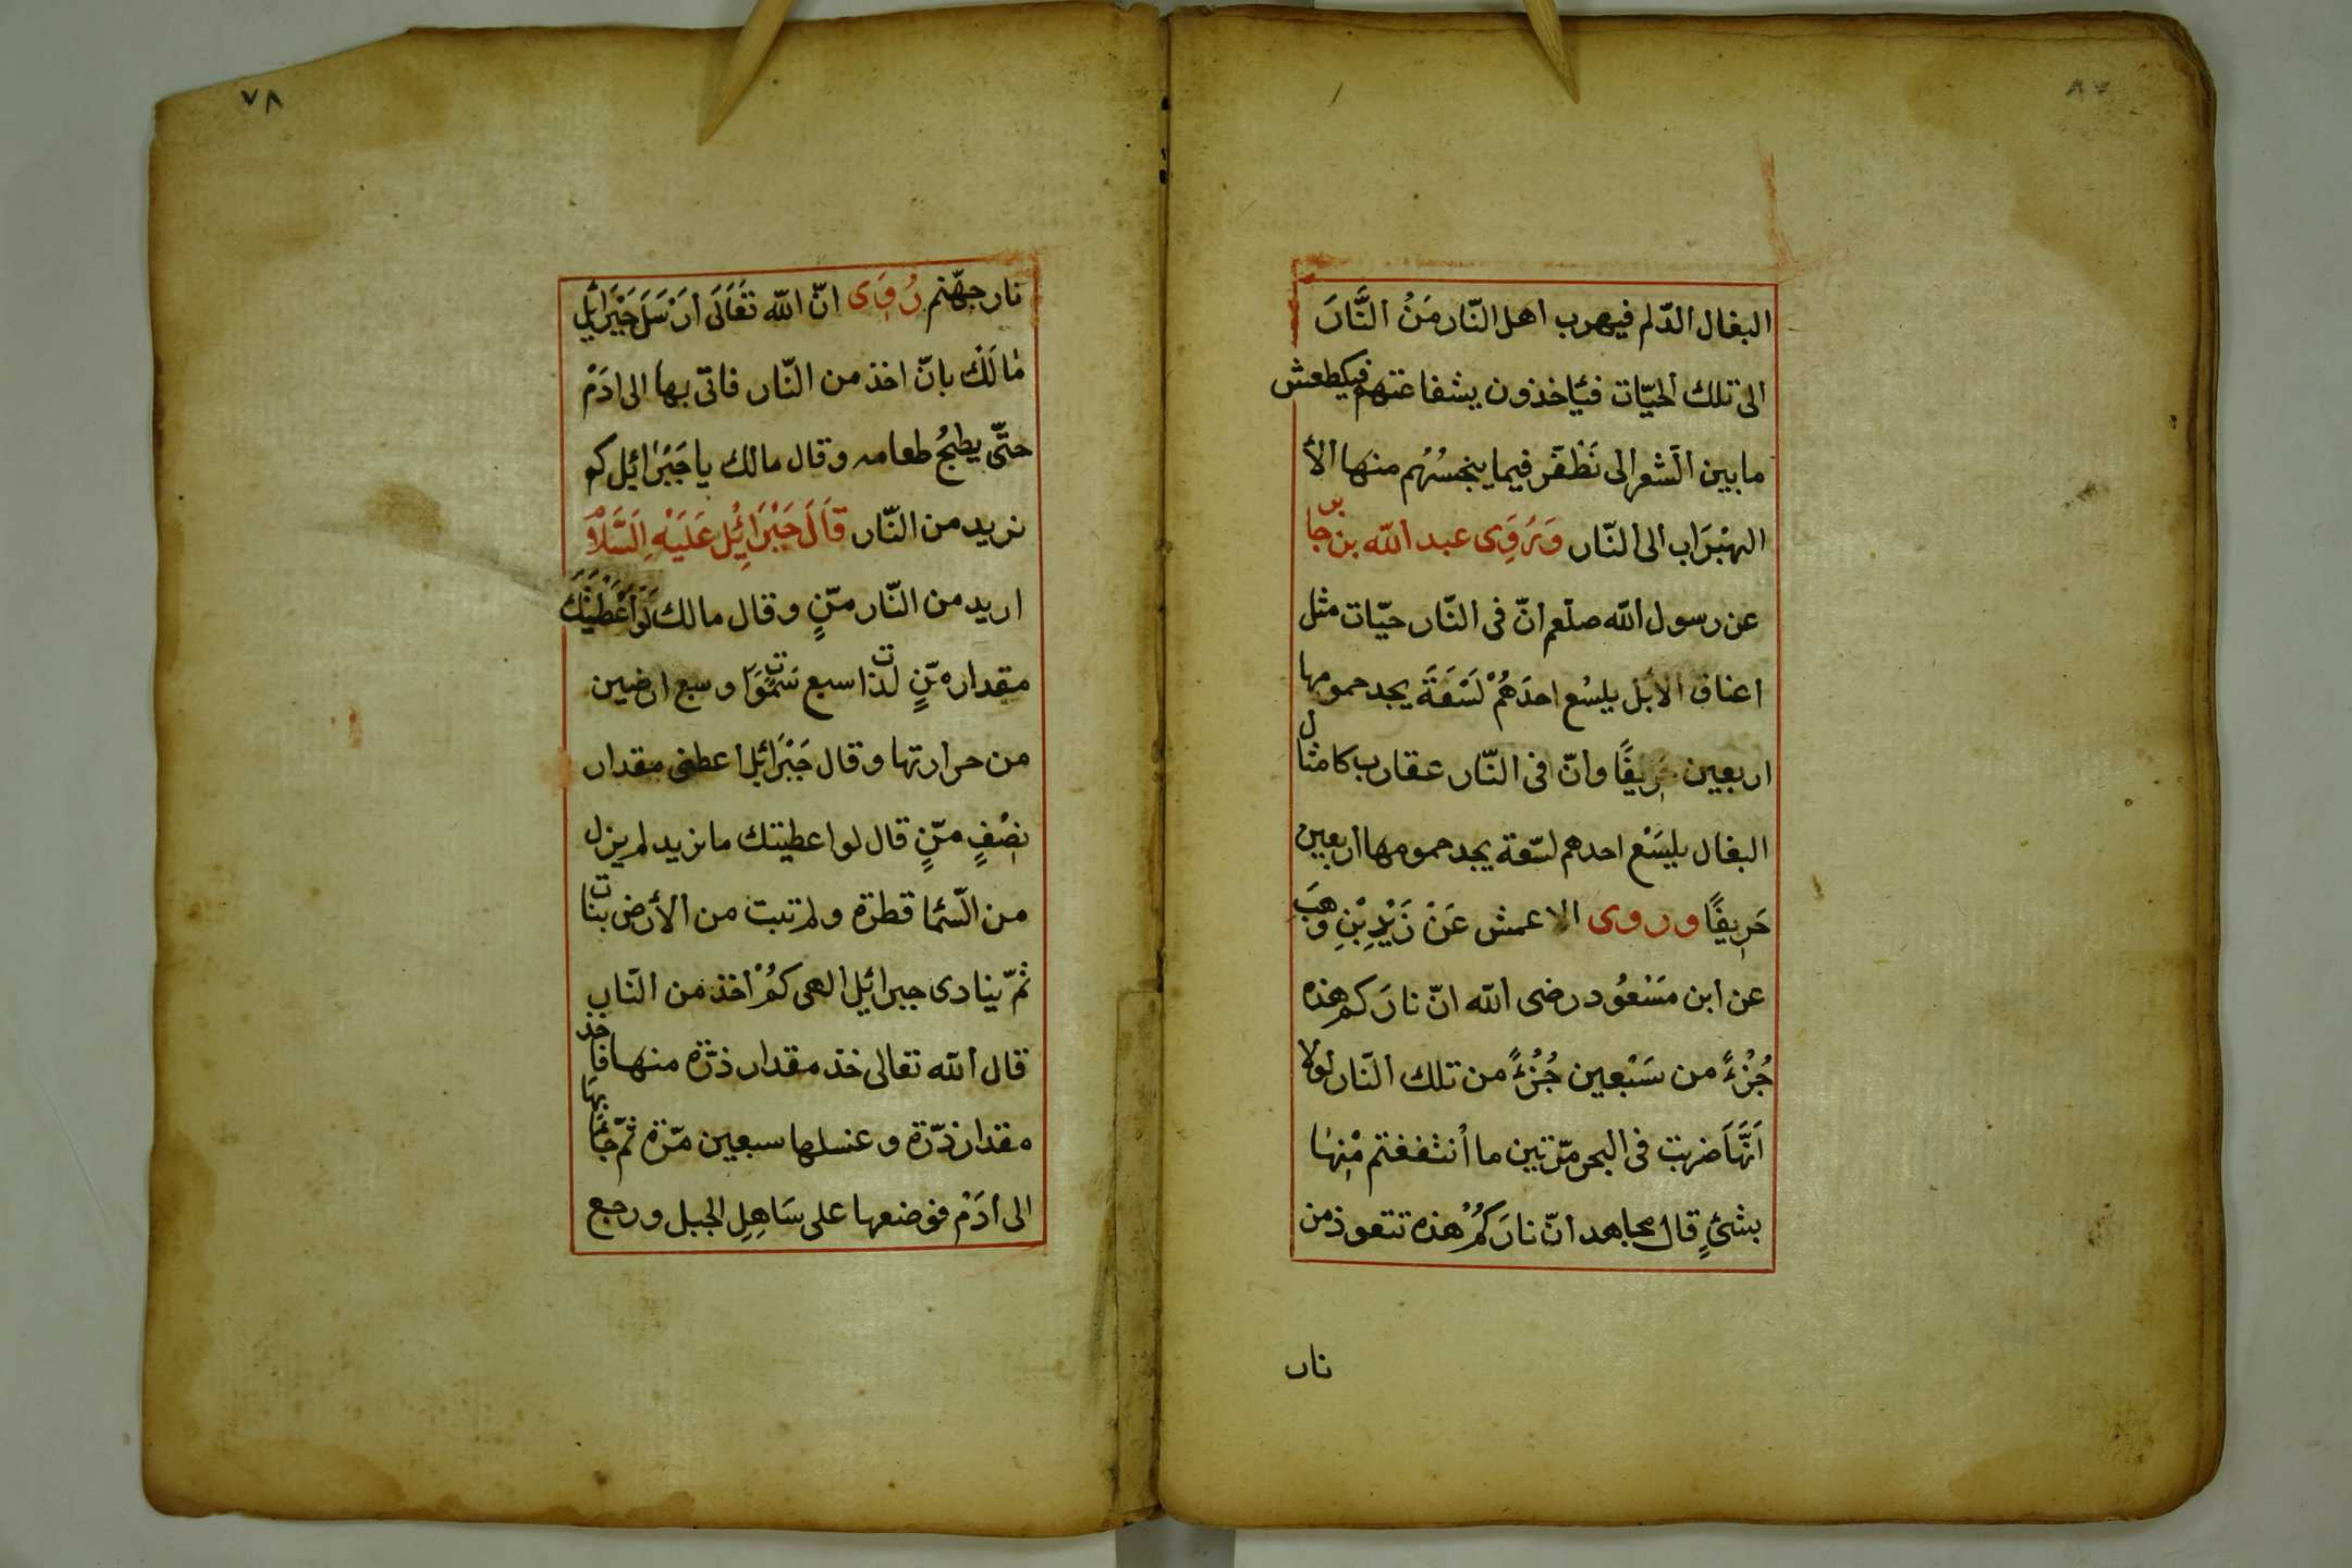 البغال الدّلم فيهرب اهل النّار مَنُ النَّارَ
الى تلك الحيّات فئَاخذون بشفاعتهم فيكطعش
ما بين الَشعر الى نَظْفَر فيما ينجسُهُم منها الأ
الهبْرَاب الى النّار وَرَوِى عبد الله بن جابر
عن رسول الله صلّعم انّ فى النّار حيّات مثل
اعناق الابل يلسُع احدَهُمْ لَسْعَةَ يجد حمومها
اربعين خريفًا وانّ فى النّار عقارب كامثال
البغال يلسَعْ احدهم لسَعة يجد حمومها اربعين
خَرِيفًا وروى الاعمش عَنْ زَيْدِ بْنِ وَهَبَ
عن ابن مَسْعُود رضى الله انّ نارَكم هذه
جُزْءً من سَبْعين جُزْءً من تلك النّار لولا
اَنَّهَا ضربت فى البحر مرّتين ما انتفغتم مْنِهَا
بشئٍ قال مجاهد انّ نارَكُمْ هذه تتعوذ من
نار
٧٨
نار جهّنم رُوِى انّ الله تَعَالَى اَرْسَلَ جَبْرَائِل
مَالَكْ بانّ اخذ من النّار فاتى بها الى ادَمْ
حتّى يطبخُ طعامه وقال مالك يا جَبْرَائيل كم
تريد من النّار قَالَ جَبْرَائِل عَلَيْهِ اِلسَّلَاَمْ
اريد من النّار متّنٍ وقال مالك لَوْ اَعْطَيْتُكَ
مقدار متّنٍ لذات سبع سَمَوَات وسبع ارضين
من حرارتها وقال جَبْرَائِل اعطنى مقدار
نِصْفٍ متّنٍ قال لو اعطيتك ما تريد لم يزل
من الَسَما قطرة ولم تبت من الأرض نبات
ثمّ ينادى جبرائِل الهى كمْ اخذ من النّار
قال الله تعالى خذ مقدار ذرّة منها فاخذ
مقدار ذرّة وغسلها سبعين مرّة ثمّ جَاءَ بهَا
الى ادَمْ فوضعها على سَاهِلِ الجبل ورجع